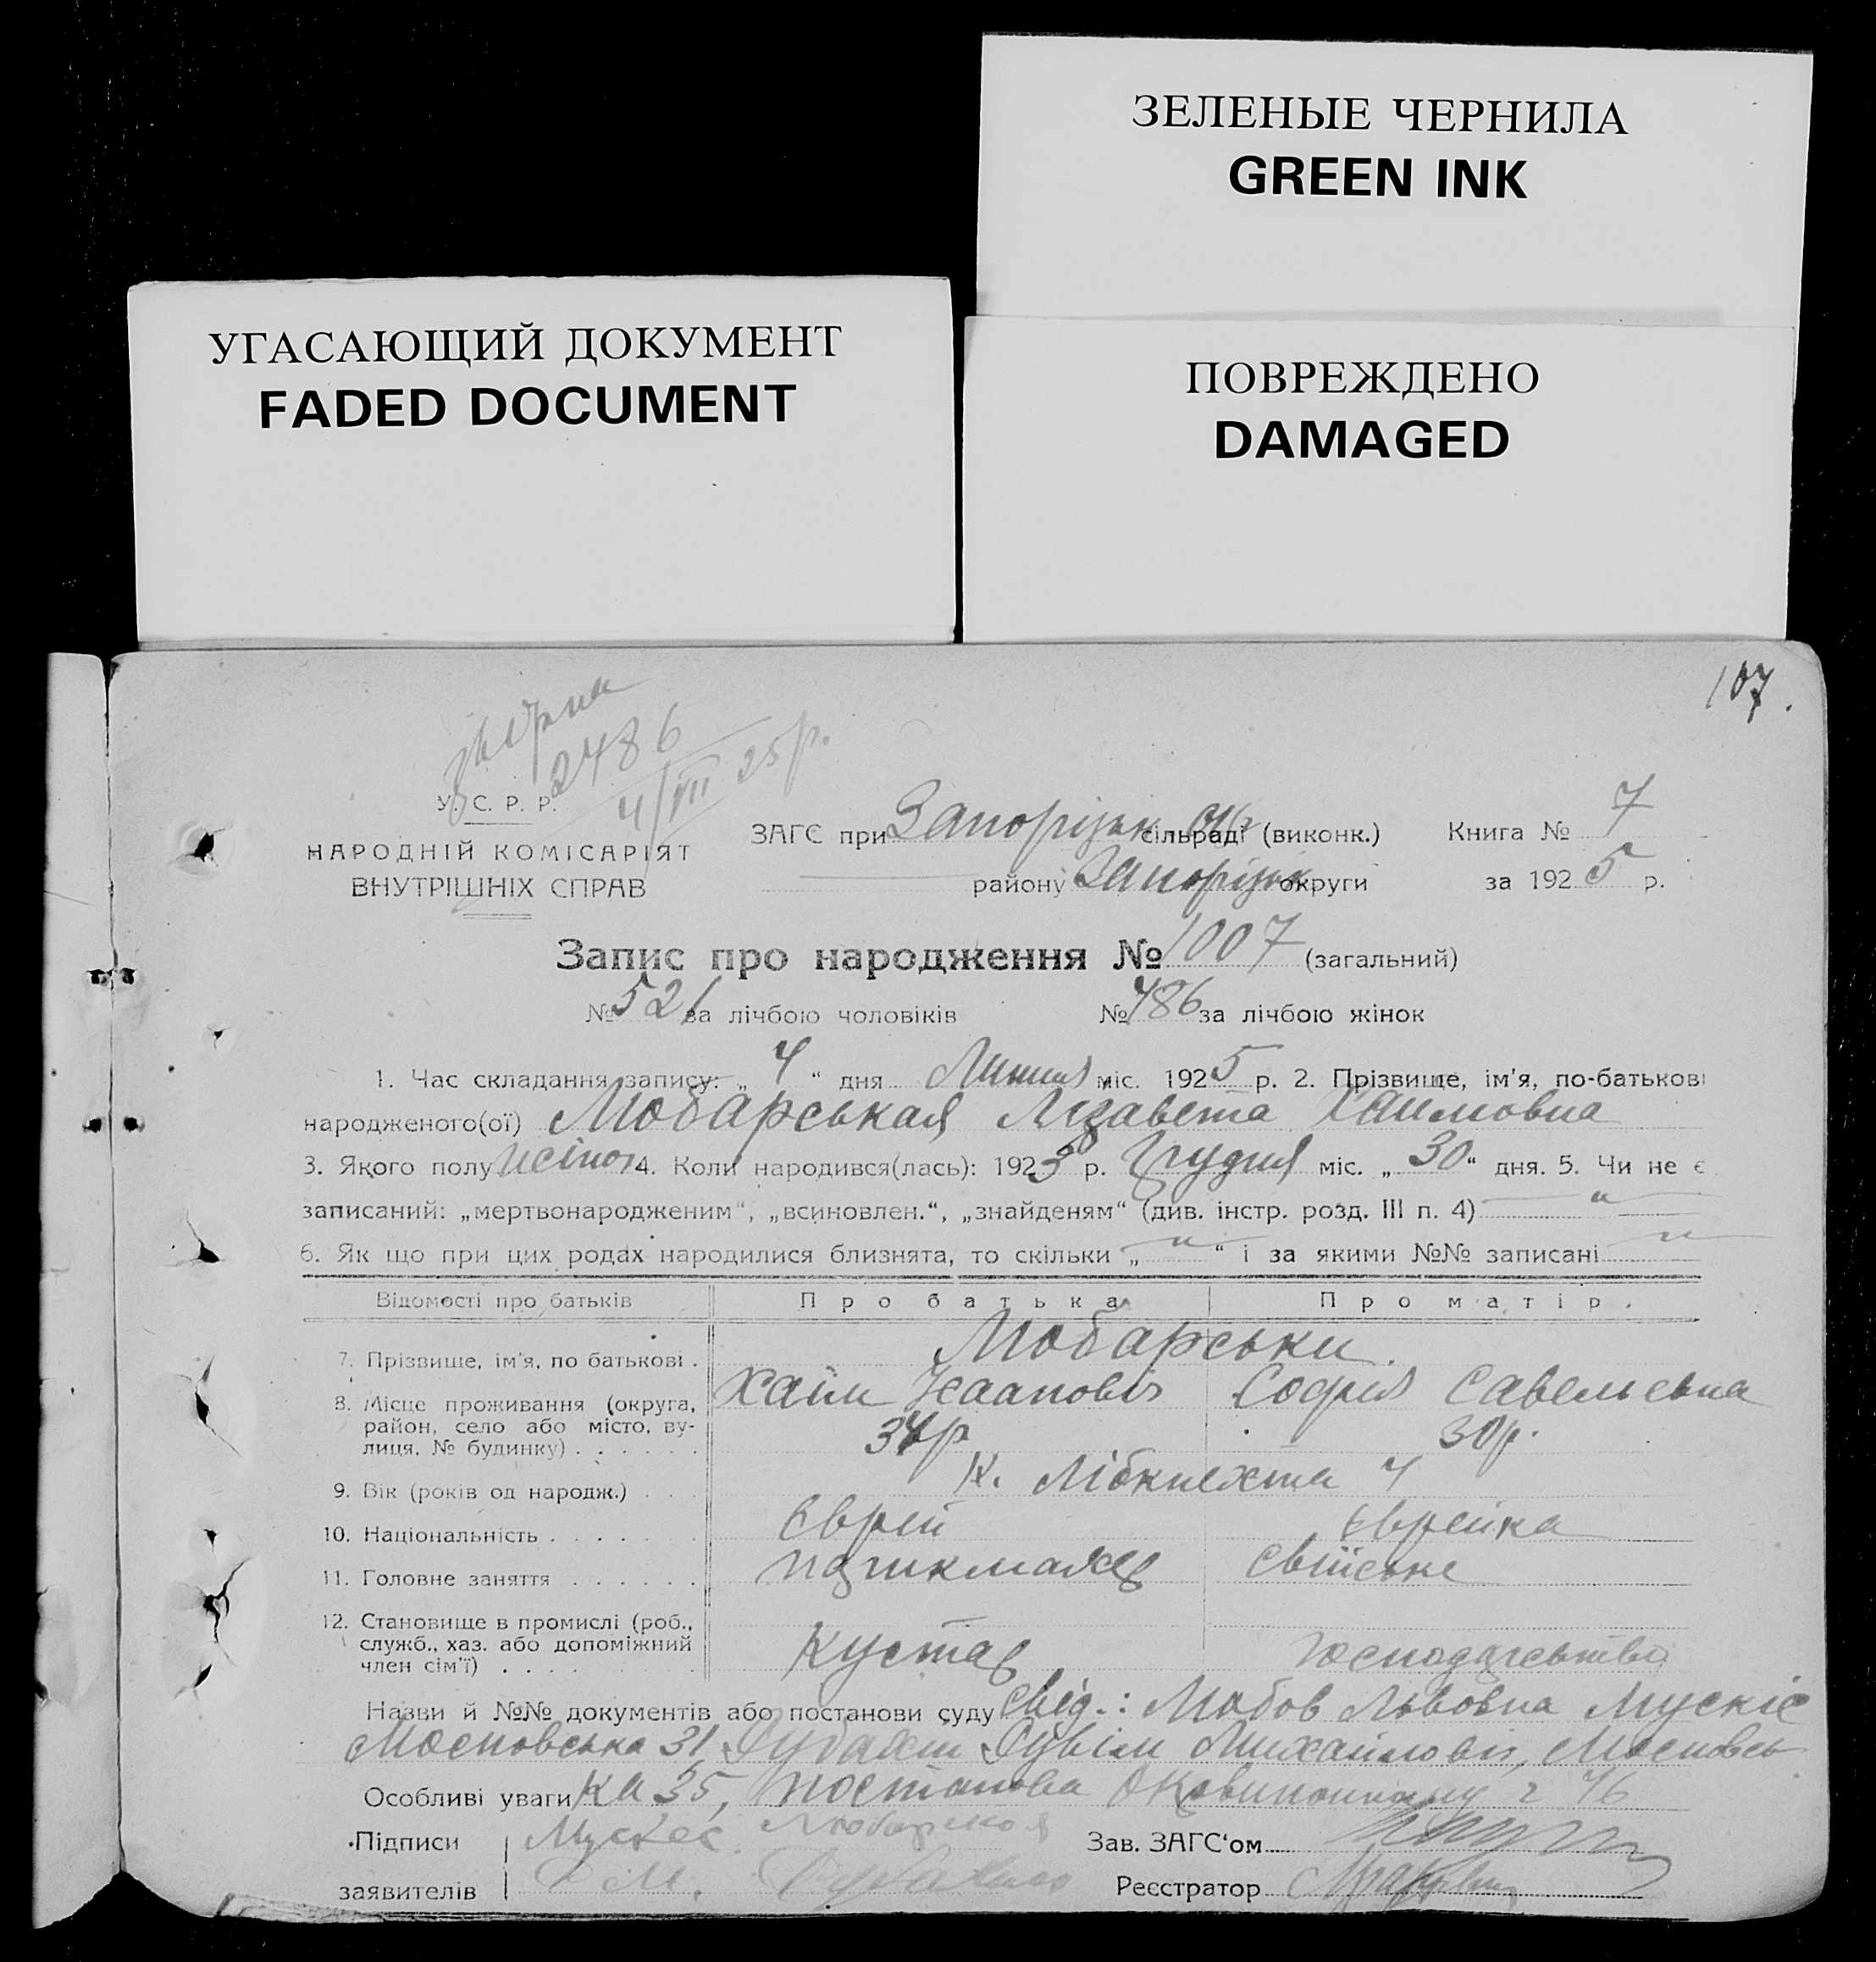 ЗЕЛЕНЫЕ ЧЕРНИЛА
GREEN INK
УГАСАЮЩИЙ ДОКУМЕНТ
FADED DOCUMENT
ПОВРЕЖДЕНО
DAMAGED
107.
2486
4/VII 25 р.
У. С. Р. Р.
НАРОДНІЙ КОМІСАРІЯТ
ВНУТРІШНІХ СПРАВ
ЗАГС при Запорізьк. Окр сільраді (виконк.) Книга № 7
району Запорізьк округи за 1925 р.
Запис про народження № 1007 (загальний)
№ 521 за лічбою чоловіків № 486 за лічбою жінок
1. Час складання запису: „ 4 “ дня Липня міс. 1925 р. 2. Прізвище, ім'я, по-батькові
народженого(ої) Любарськая Лізавета Хаимовна
3. Якого полу жіноч 4. Коли народився(лась): 1923 р. Грудня міс. „ 30 “ дня. 5. Чи не є
записаний: „мертвонародженим“, „всиновлен.“, „знайденям“ (див. інстр. розд. III п. 4) "
6. Як що при цих родах народилися близнята, то скільки „ " “ і за якими №№ записані "
Відомості про батьків Про батька Про матір.
Любарськи.
7. Прізвище, ім'я, по батькові .
Хаім Ісаановіч Софія Савельевна
8. Місце проживання (округа, район, село або місто, вулиця, № будинку) . . . . . .
34 р 30 р.
К. Лібкнехта 4
9. Вік (років од народж.) . . .
10. Національність . . . . . . Єврей Єврейка
11. Головне заняття . . . . . . Свійське
12. Становище в промислі (роб., служб., хаз. або допоміжний член сім'ї) . . . . Кустар господарсьтво
Назви й №№ документів або постанови суду Свід.: Любов Львовна Мускіс
Московська 31, Михайловіч, Московсь
Особливі уваги ка 35, Постанова Окрвиконкому ч 46
Підписи Любарская Зав. ЗАГС'ом
заявителів Д М. Реєстратор